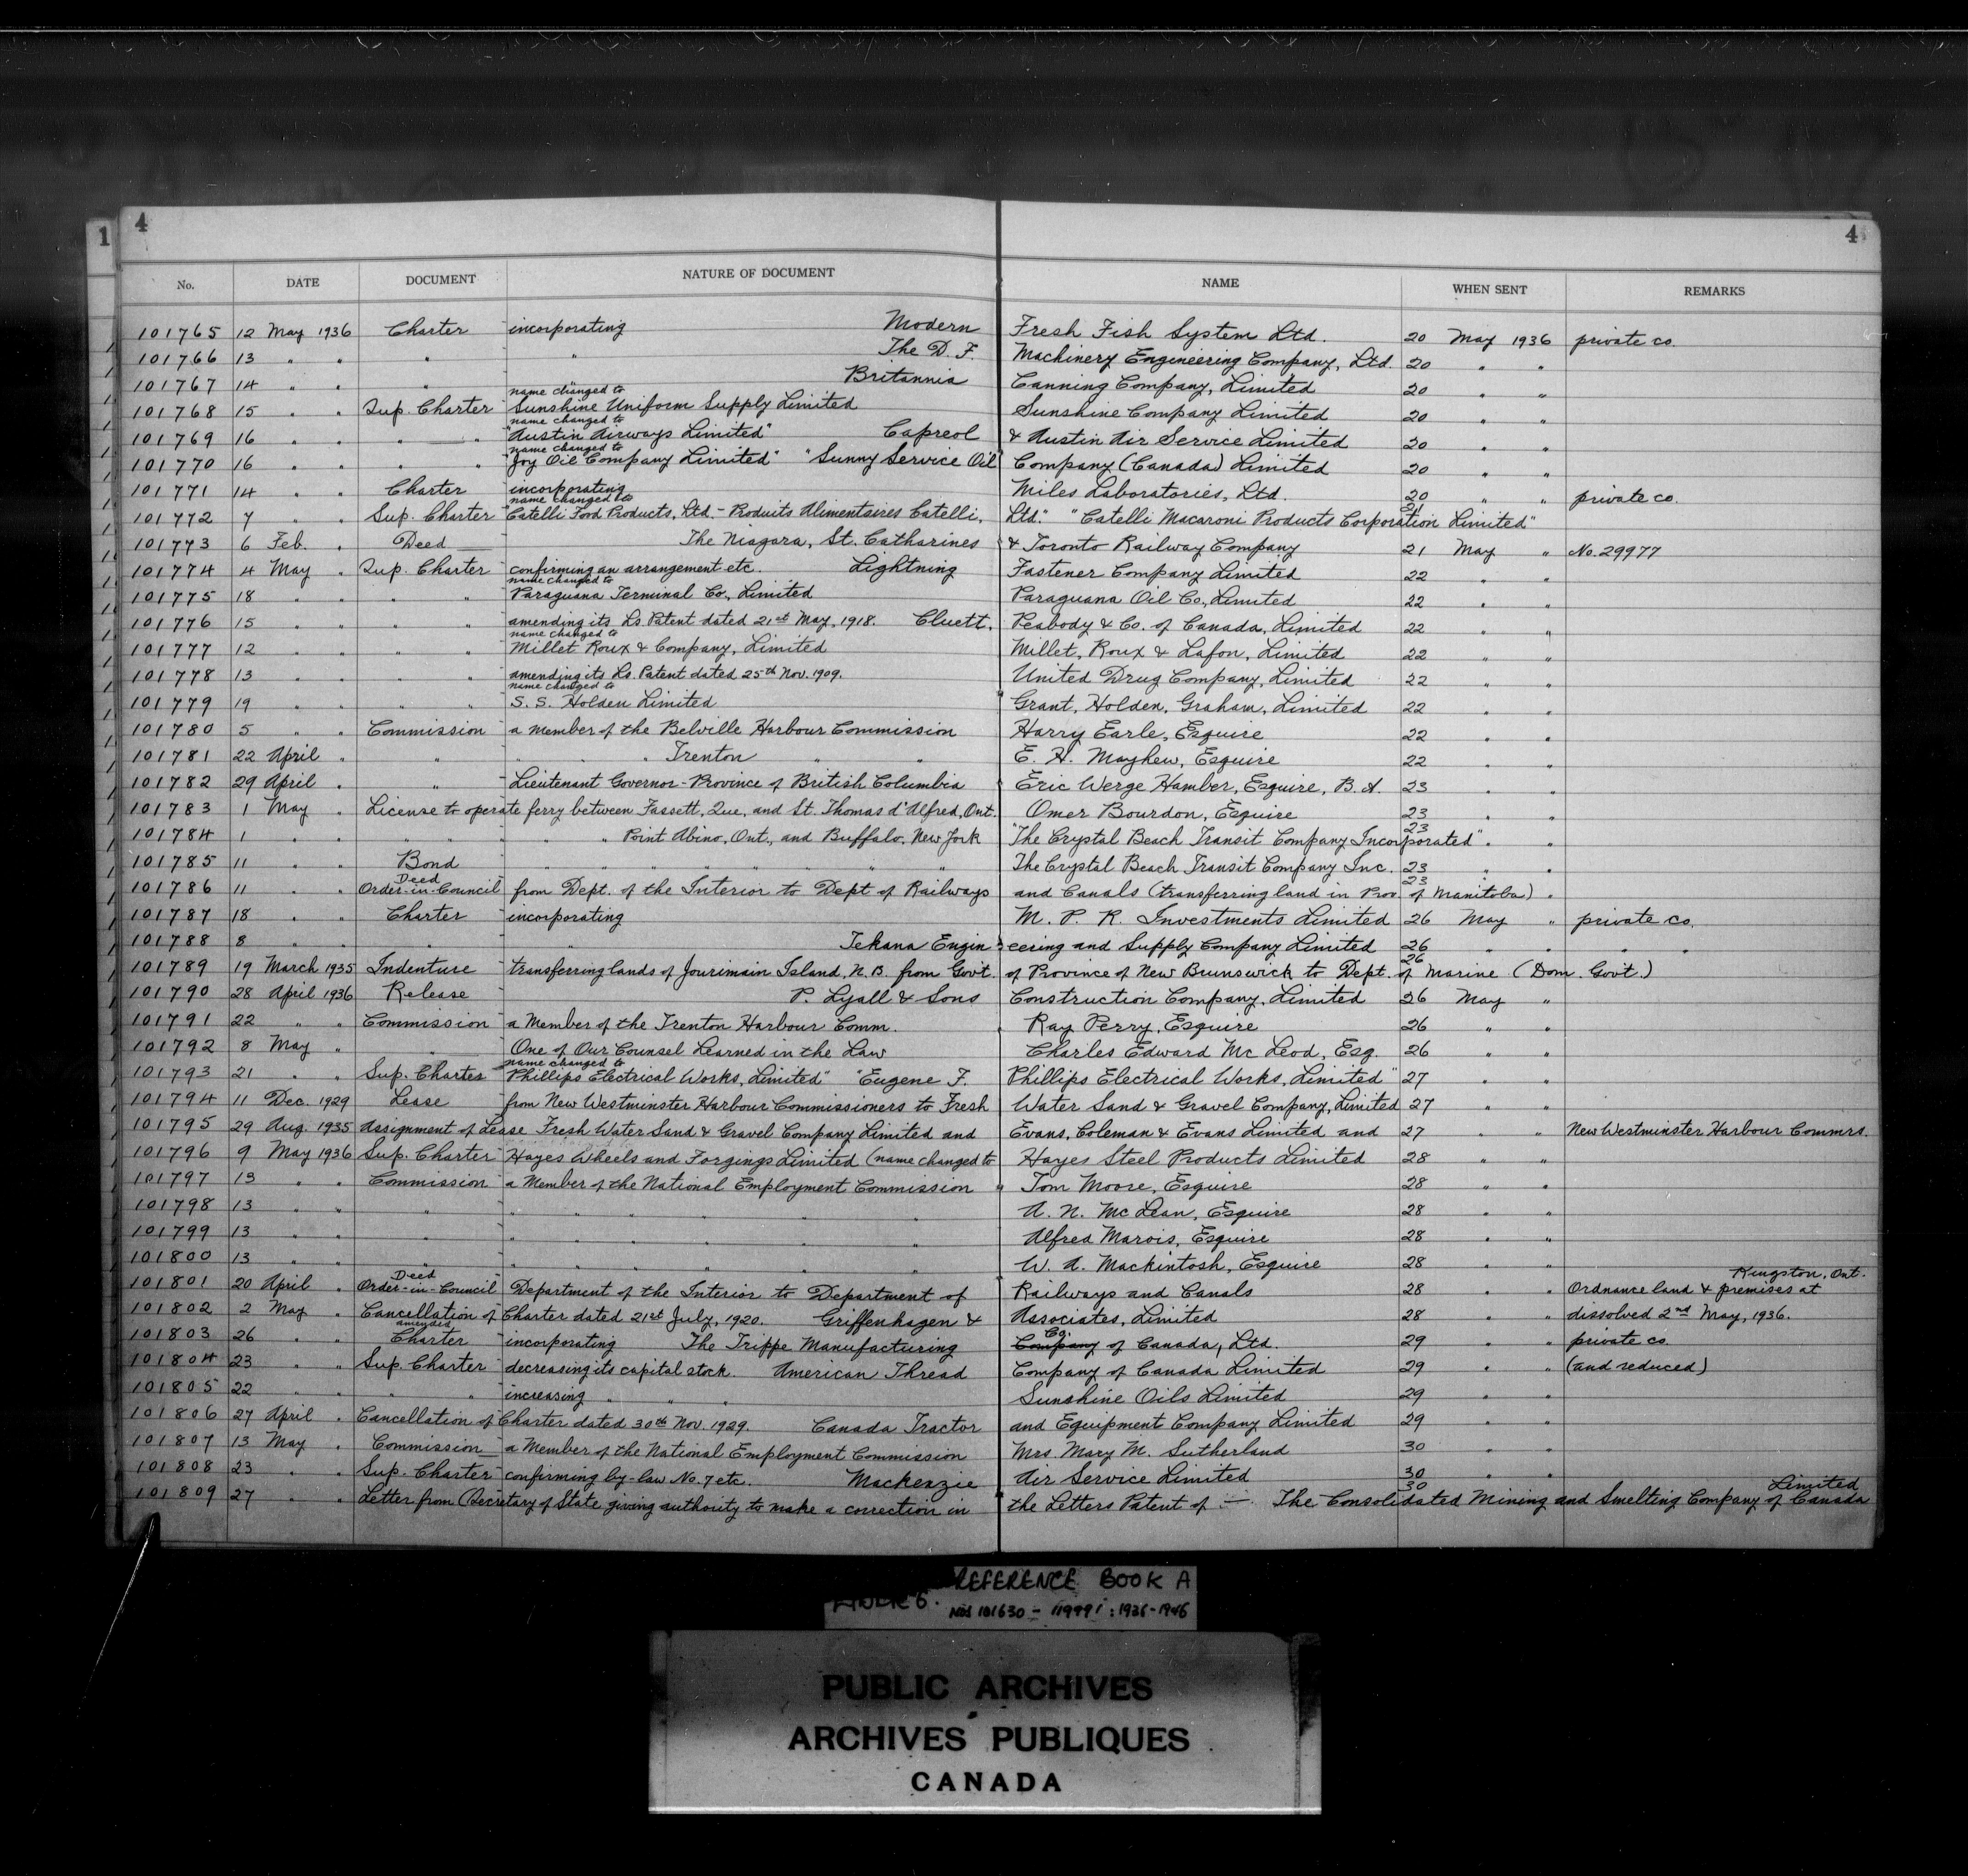 1 4 4
No. DATE DOCUMENT NATURE OF DOCUMENT NAME WHEN SENT REMARKS
101765 12 May 1936 Charter incorporating Modern Fresh Fish System Ltd. 20 May 1936 private co.
101766 13 " " " " The D. F. Machinery Engineering Company, Ltd. 20 " "
101767 14 " " " " Britannia Canning Company, Limited 20 " "
name changed to
101768 15 " " Sup. Charter Sunshine Uniform Supply Limited Sunshine Company Limited 20 " "
name changed to
101769 16 " " " " "Austin Airways Limited" Capreol & Austin Air Service Limited 20 " "
name changed to
101770 16 " " " " "Joy Oil Company Limited" "Sunny Service Oil Company (Canada) Limited 20 " "
101771 14 " " Charter incorporating Miles Laboratories, Ltd. 20 " " private co.
name changed to 21
101772 7 " " Sup. Charter "Catelli Food Products, Ltd. - Produits Alimentaires Catelli, Ltd." "Catelli Macaroni Products Corporation Limited"
101773 6 Feb. " Deed The Niagara, St. Catharines & Toronto Railway Company 21 May " No. 29977
101774 4 May " Sup. Charter confirming an arrangement etc. Lightning Fastener Company Limited 22 " "
name changed to
101775 18 " " " " Paraguana Terminal Co., Limited Paraguana Oil Co., Limited 22 " "
101776 15 " " " " amending its Ls Patent dated 21st May, 1918. Cluett, Peabody & Co. of Canada, Limited 22 " "
name changed to
101777 12 " " " " Millet Roux & Company, Limited Millet, Roux & Lafon, Limited 22 " "
101778 13 " " " " amending its Ls. Patent dated 25th Nov. 1909. United Drug Company, Limited 22 " "
name changed to
101779 19 " " " " S. S. Holden Limited Grant, Holden, Graham, Limited 22 " "
101780 5 " " Commission a member of the Belville Harbour Commission Harry Earle, Esquire 22 " "
101781 22 April " " " " " Trenton " " E. H. Mayhew, Esquire 22 " "
101782 29 April " " Lieutenant Governor - Province of British Columbia Eric Werge Hamber, Esquire, B.A. 23 " "
101783 1 May " License to operate ferry between Fassett, Que, and St. Thomas d'Alfred, Ont. Omer Bourdon, Esquire 23 " "
23
101784 1 " " " " " " Point Abino, Ont., and Buffalo, New York "The Crystal Beach Transit Company Incorporated" " "
101785 11 " " Bond " " " " " The Crystal Beach Transit Company Inc. 23 " "
Deed 23
101786 11 " " Order-in-Council from Dept. of the Interior to Dept of Railways and Canals (transferring land in Prov of Manitoba) "
101787 18 " " Charter incorporating M. P. R. Investments Limited 26 May " private co.
101788 8 " " " " Tekana Engineering and Supply Company Limited 26 " " " "
26
101789 19 March 1935 Indenture transferring lands of Jourimain Island, N.B. from Govt. of Province of New Brunswick to Dept. of Marine (Dom. Govt.)
101790 28 April 1936 Release P. Lyall & Sons Construction Company, Limited 26 May "
101791 22 " " Commission a Member of the Trenton Harbour Comm. Ray Perry, Esquire 26 " "
101792 8 May " " One of Our Counsel Learned in the Law Charles Edward McLeod, Esq. 26 " "
name changed to
101793 21 " " Sup. Charter "Phillips Electrical Works, Limited" "Eugene F. Phillips Electrical Works, Limited" 27 " "
101794 11 Dec. 1929 Lease from New Westminster Harbour Commissioners to Fresh Water Sand & Gravel Company, Limited 27 " "
101795 29 Aug. 1935 Assignment of Lease Fresh Water Sand & Gravel Company Limited and Evans, Coleman & Evans Limited and 27 " " New Westminster Harbour Commrs.
101796 9 May 1936 Sup. Charter Hayes Wheels and Forgings Limited (name changed to Hayes Steel Products Limited 28 " "
101797 13 " " Commission a Member of the National Employment Commission Tom Moore, Esquire 28 " "
101798 13 " " " " " " " " " A. N. McLean, Esquire 28 " "
101799 13 " " " " " " " " " Alfred Marois, Esquire 28 " "
101800 13 " " " " " " " " " W. A. Mackintosh, Esquire 28 " "
Deed Kingston, Ont.
101801 20 April " Order-in-Council Department of the Interior to Department of Railways and Canals 28 " " Ordnance land & premises at
101802 2 May " Cancellation of Charter dated 21st July, 1920. Griffenhagen & Associates, Limited 28 " " dissolved 2nd May, 1936.
amended Co.
101803 26 " " Charter incorporating The Trippe Manufacturing Company of Canada, Ltd. 29 " " private co
101804 23 " " Sup. Charter decreasing its capital stock. American Thread Company of Canada Limited 29 " " (and reduced)
101805 22 " " " " increasing " " " Sunshine Oils Limited 29 " "
101806 27 April " Cancellation of Charter dated 30th Nov. 1929. Canada Tractor and Equipment Company Limited 29 " "
101807 13 May " Commission a Member of the National Employment Commission Mrs. Mary M. Sutherland 30 " "
101808 23 " " Sup. Charter confirming by-law No. 7 etc. Mackenzie Air Service Limited 30 " "
30 Limited
101809 27 " " Letter from Secretary of State giving authority to make a correction in the Letters Patent of - The Consolidated Mining and Smelting Company of Canada
REFERENCE BOOK A
Nos 101630 -
PUBLIC ARCHIVES
ARCHIVES PUBLIQUES
CANADA